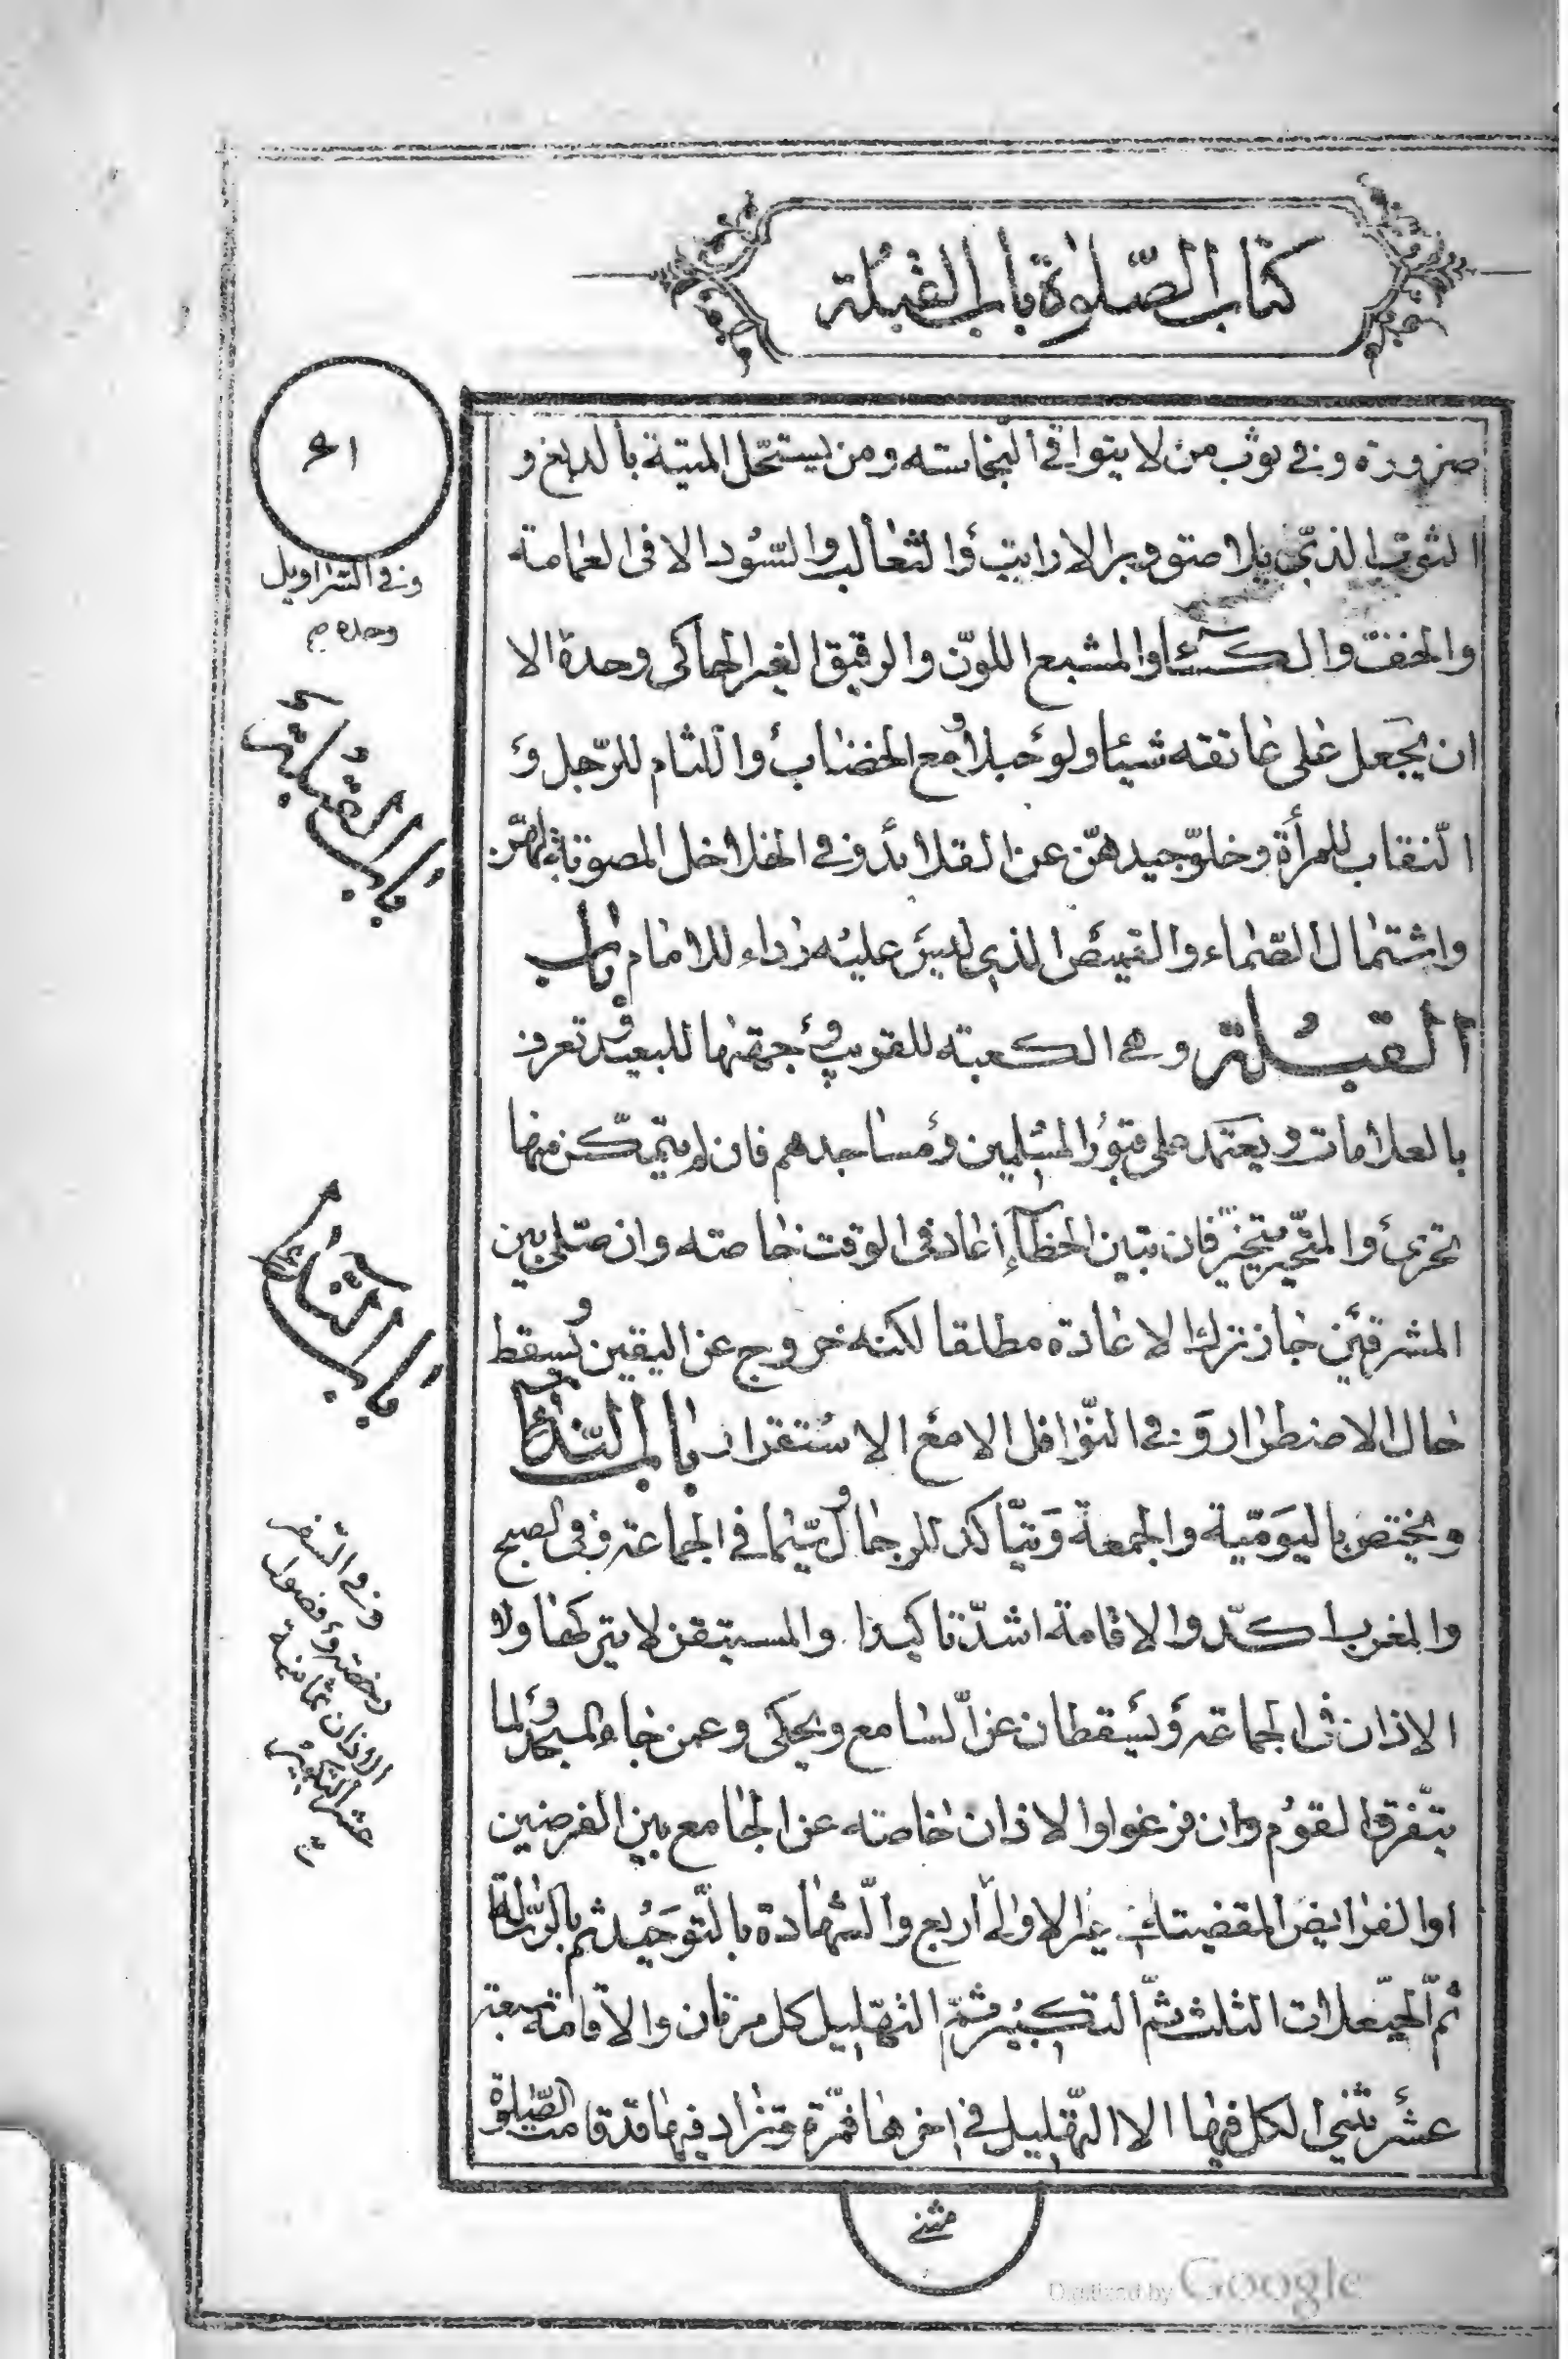 كتاب الصّلوة باب القبلة
٤١
ضرورة وفي ثوب من لا يتوقى النّجاسته ومن يستحّل الميتة بالدبغ و
الثوب الذي يلاصق وبر الارانب والثعالب والسّود الا في العمامة
والخفّ والكساء والمشبع اللون والرقيق الغير الحاكى وحدة الا
ان يجعل على عاتقه شيئا ولو حبلا ومع الخضاب واللثام للرّجل و
النقاب للمرأة وخلوّ جيدهنّ عن القلائد وفي الخلاخل المصوتة لهنّ
واشتمال الصّماء والقميص الذي ليس عليه رداء للامام باب
القبلة وهي الكعبة للقريب وجهتها للبعيد وتعرف
بالعلامات ويعتمد على قبور المسلمين ومساجدهم فان لم يتمكّن منها
تحرى والمتحّير يتخيّر فان تبين الخطآء اعاد في الوقت خاصته وان صلى بين
المشرقين جاز ترك الاعادة مطلقا لكنه خروج عن اليقين وتسقط
حال الاضطرار وفي النّوافل الا مع الاستقرار باب النّداء
ويختص باليوميّة والجمعة ويتأكد للرجال وسيّما في الجماعة وفي الصبح
والمغرب اكدّ والاقامة اشدّ تاكيدا والمستيقن لا يتركها ولا
الاذان في الجماعة ويسقطان عن السّامع ويحكى وعمن جاء المسجد ولما
يتفّرق القوم وان فرغوا والاذان خاصته عن الجامع بين الفرضين
او الفرائض المقضيات غير الاولى اربع والشّهادة بالتّوحيد ثم بالرّسالة
ثمّ الحيّعلات الثلث ثمّ التكبير ثمّ التهّليل كل مرتان والاقامة سبعة
عشر يثني الكل فيها الا التهّليل في اخرها فمّرة وتزاد فيها قد قامت الصّلوة
مثنى
وفي السّراويل
وحده م
باب القبلة
باب النّداء
وفي السّفر
رخصته وفصول
الاذان ثمانية
عشر التكبير
Digitized by Google